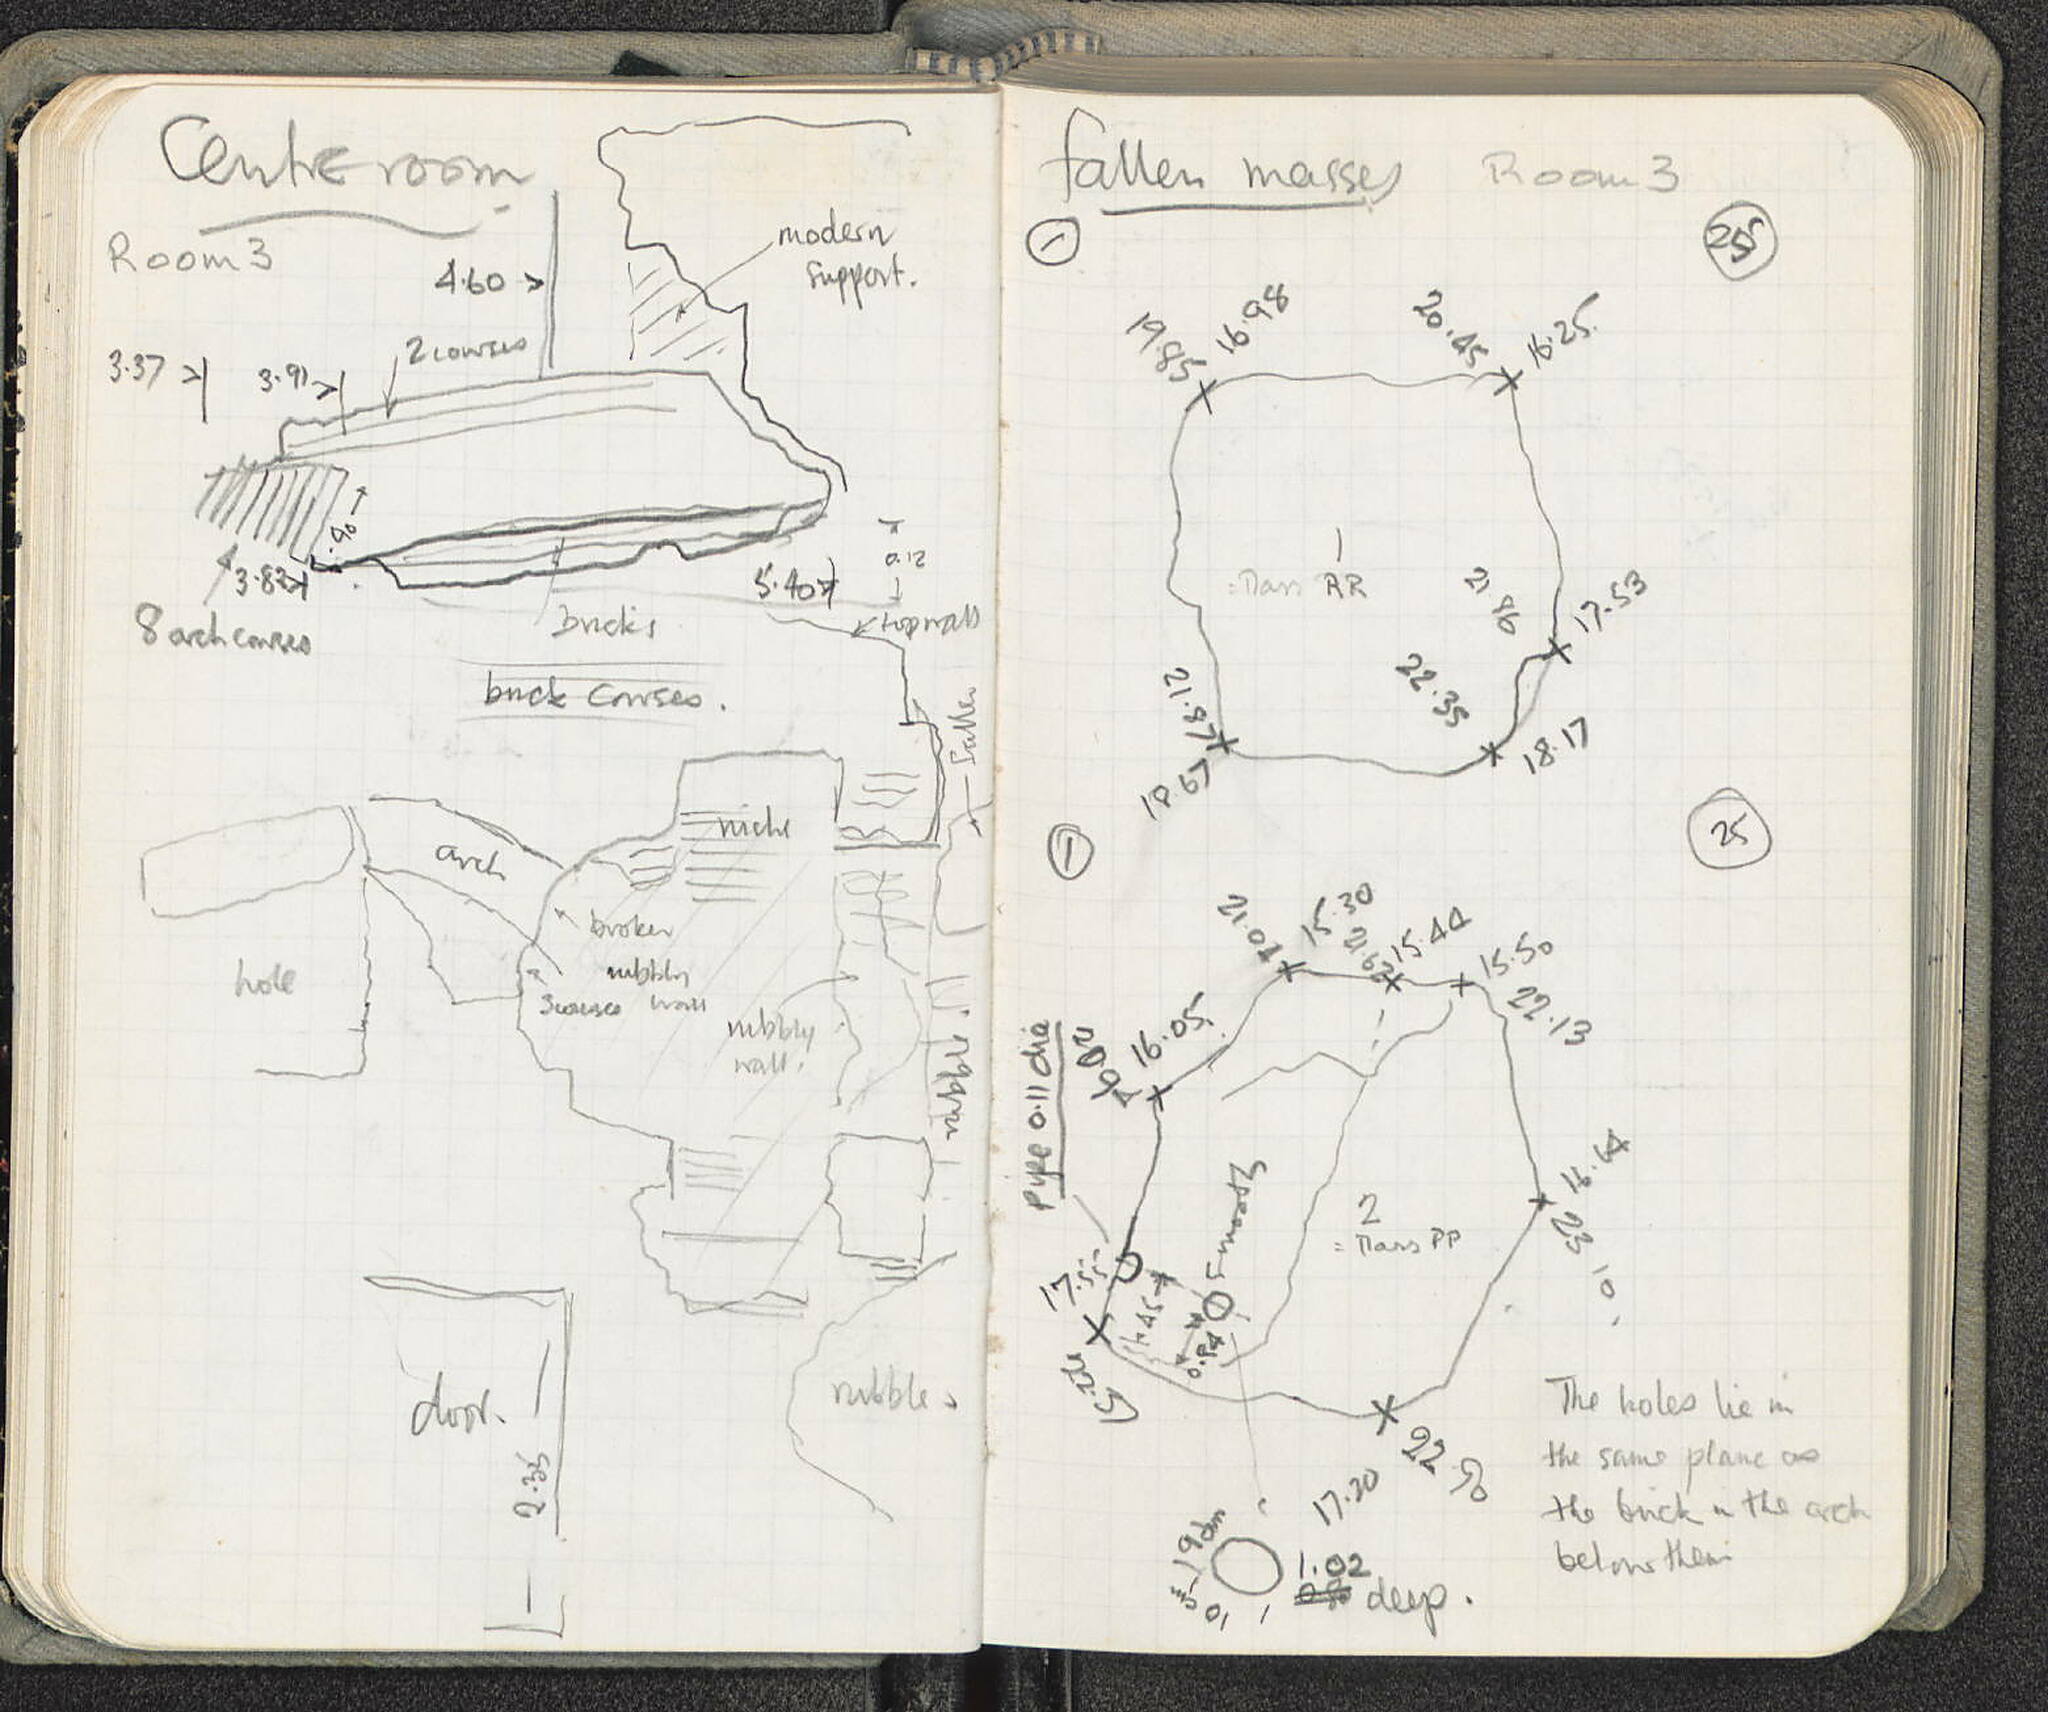 Centre room
Room 3
modern
support.
4.60
2 courses
3.37
3.91
.90
3.82
8 arch courses
5.40
0.12
top wall
bricks
brick courses.
fallen
niche
arch
broken
rubbly
wall
3 courses
hole
rubbly
wall.
rubble
door.
2.35
rubble
fallen masses Room 3
1
255
19.85
16.98
20.45
16.25
1
= Mass RR
21.86
17.53
22.35
21.87
18.67
18.17
1
25
21.07
15.30
21.62
15.44
15.50
22.13
16.05
Pype 0.11 dia
Smooth
2
= Mass PP
23.10
17.55
.45
0.54
22.50
17.20
The holes lie in
the same plane as
the brick in the arch
below them
1.02
deep.